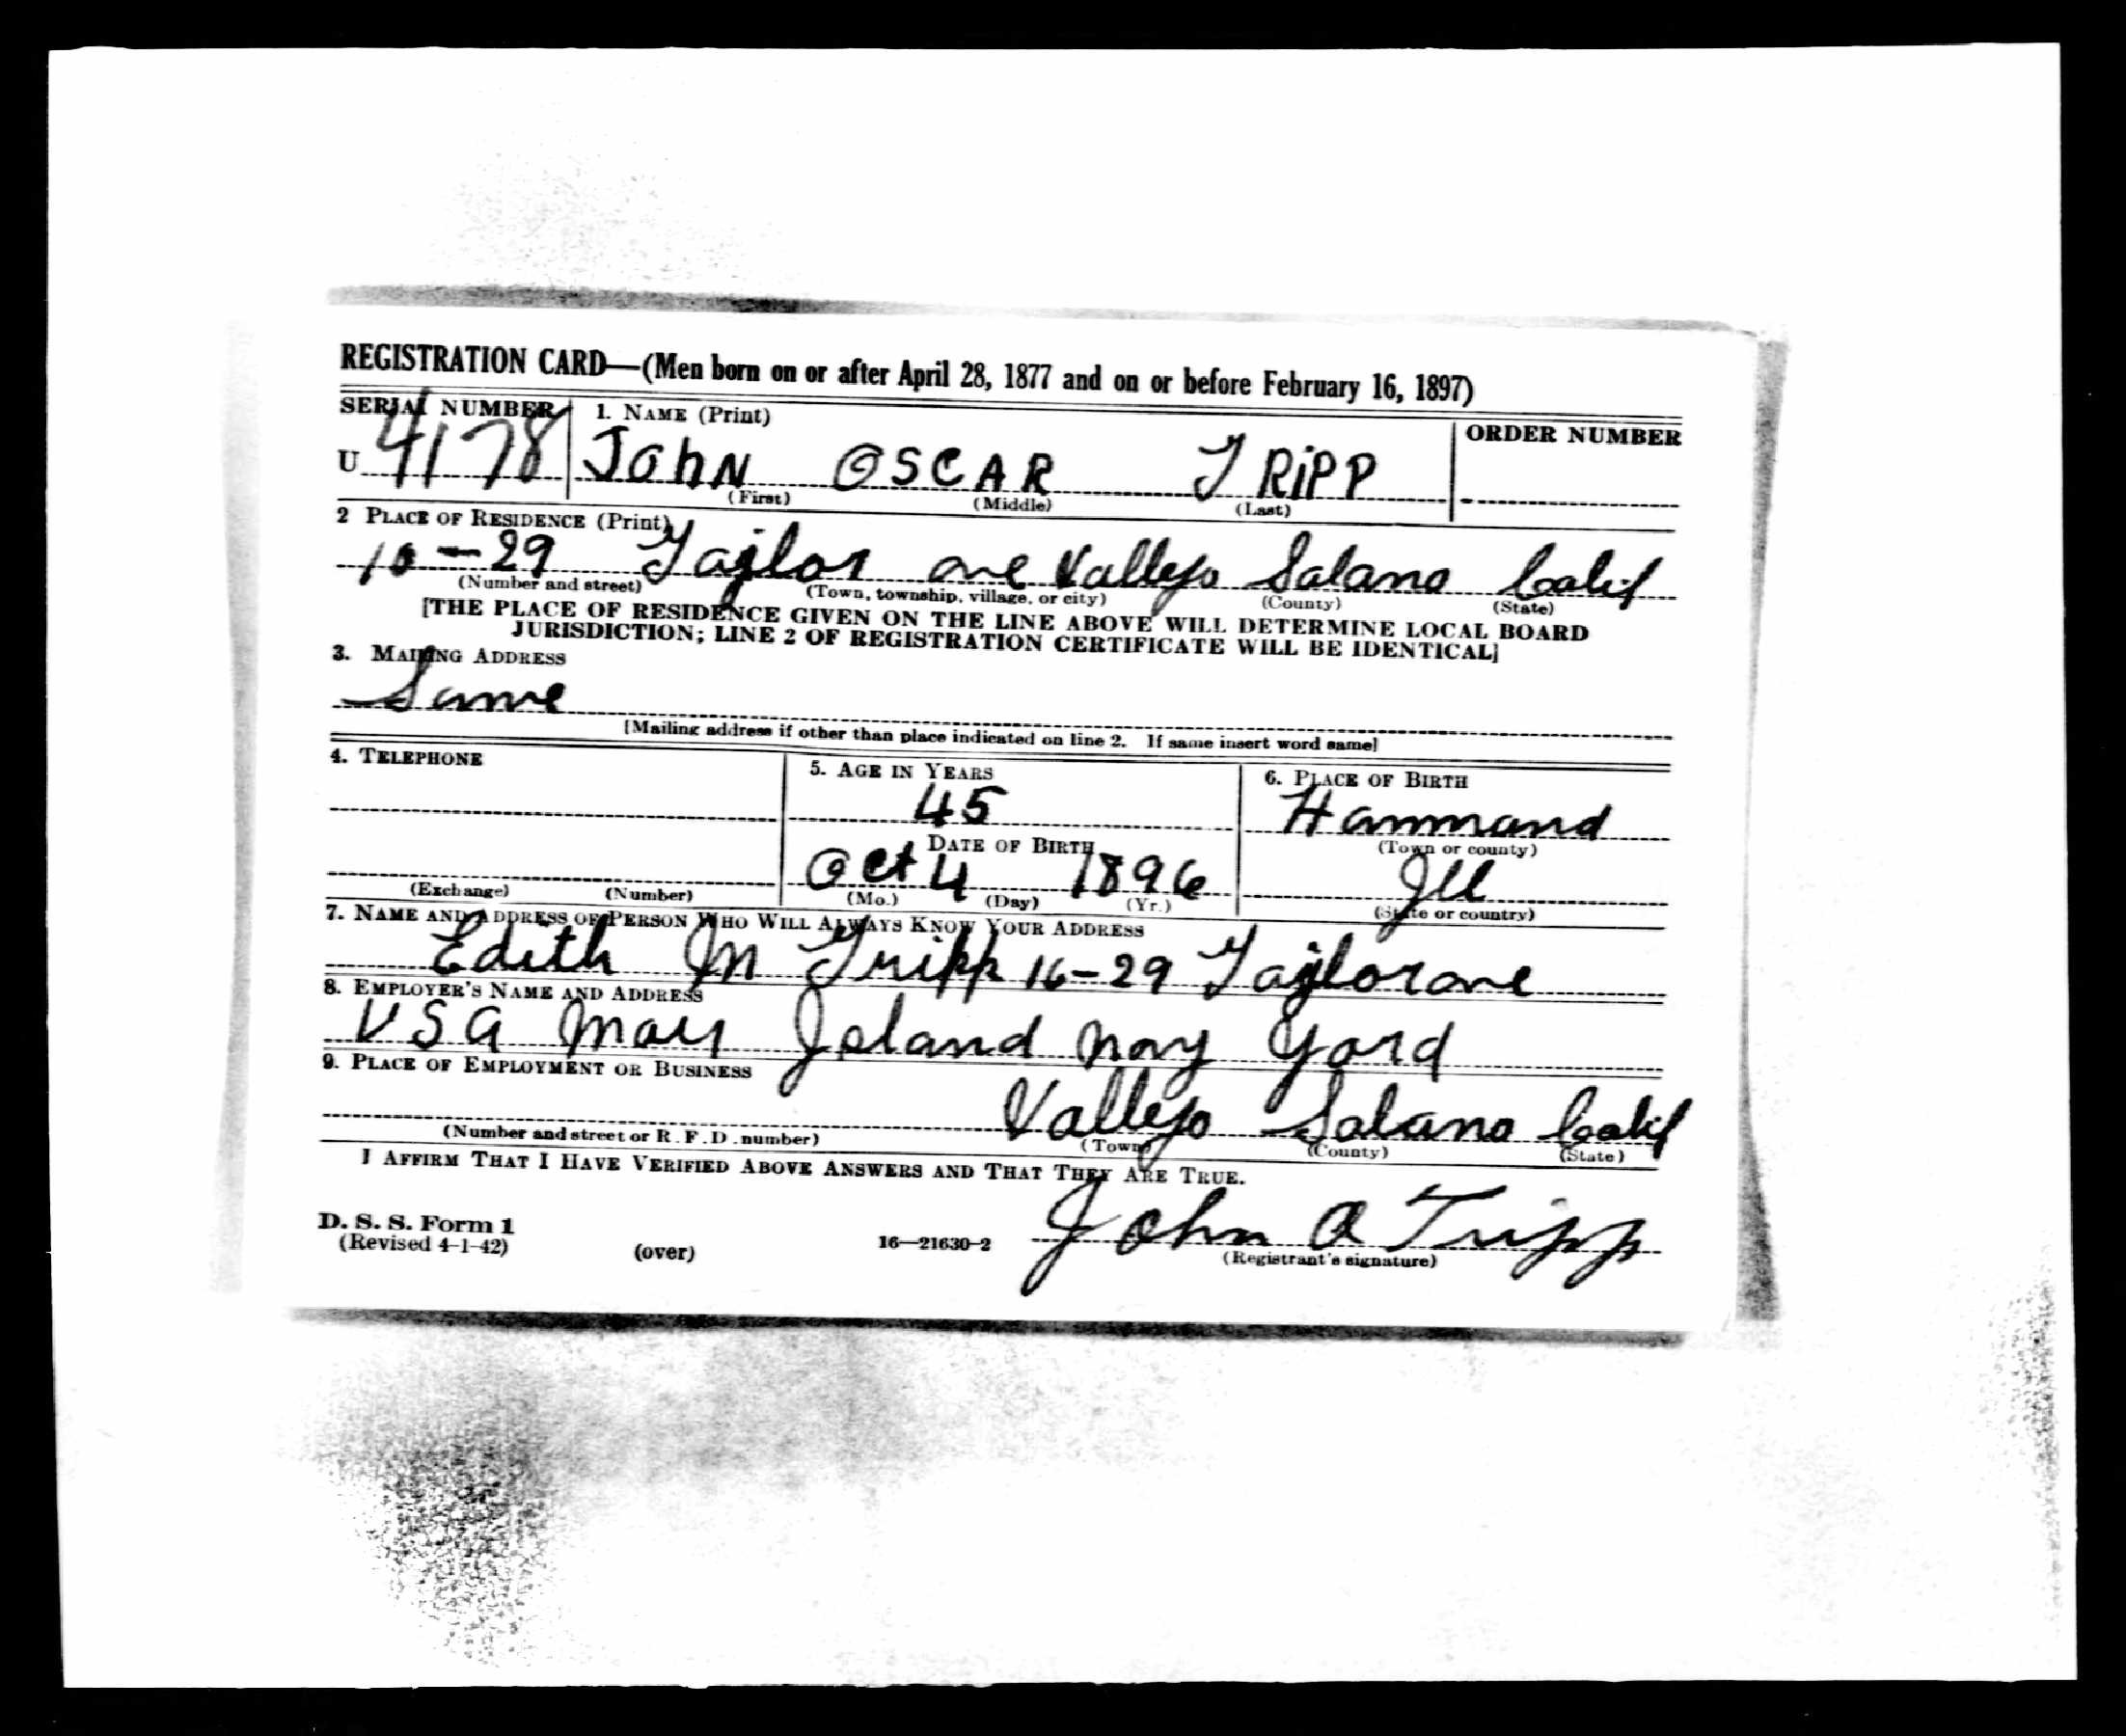 REGISTRATION CARD—(Men born on or after April 28, 1877 and on or before February 16, 1897)
SERIAL NUMBER 1. NAME (Print) ORDER NUMBER
U 4178 JOHN OSCAR TRIPP
(First) (Middle) (Last)
2 PLACE OF RESIDENCE (Print)
16-29 Taylor ave Vallejo Solano Calif
(Number and street) (Town, township, village, or city) (County) (State)
[THE PLACE OF RESIDENCE GIVEN ON THE LINE ABOVE WILL DETERMINE LOCAL BOARD
JURISDICTION; LINE 2 OF REGISTRATION CERTIFICATE WILL BE IDENTICAL]
3. MAILING ADDRESS
Same
[Mailing address if other than place indicated on line 2. If same insert word same]
4. TELEPHONE 5. AGE IN YEARS 6. PLACE OF BIRTH
45 Hammand
DATE OF BIRTH (Town or county)
Oct 4 1896 Ill
(Exchange) (Number) (Mo.) (Day) (Yr.) (State or country)
7. NAME AND ADDRESS OF PERSON WHO WILL ALWAYS KNOW YOUR ADDRESS
Edith M Tripp 16-29 Taylor ave
8. EMPLOYER'S NAME AND ADDRESS
USA Mary Island Navy Yard
9. PLACE OF EMPLOYMENT OR BUSINESS
Vallejo Solano Calif
(Number and street or R.F.D. number) (Town) (County) (State)
I AFFIRM THAT I HAVE VERIFIED ABOVE ANSWERS AND THAT THEY ARE TRUE.
D. S. S. Form 1
(Revised 4-1-42) (over) 16—21630-2 John O Tripp
(Registrant's signature)